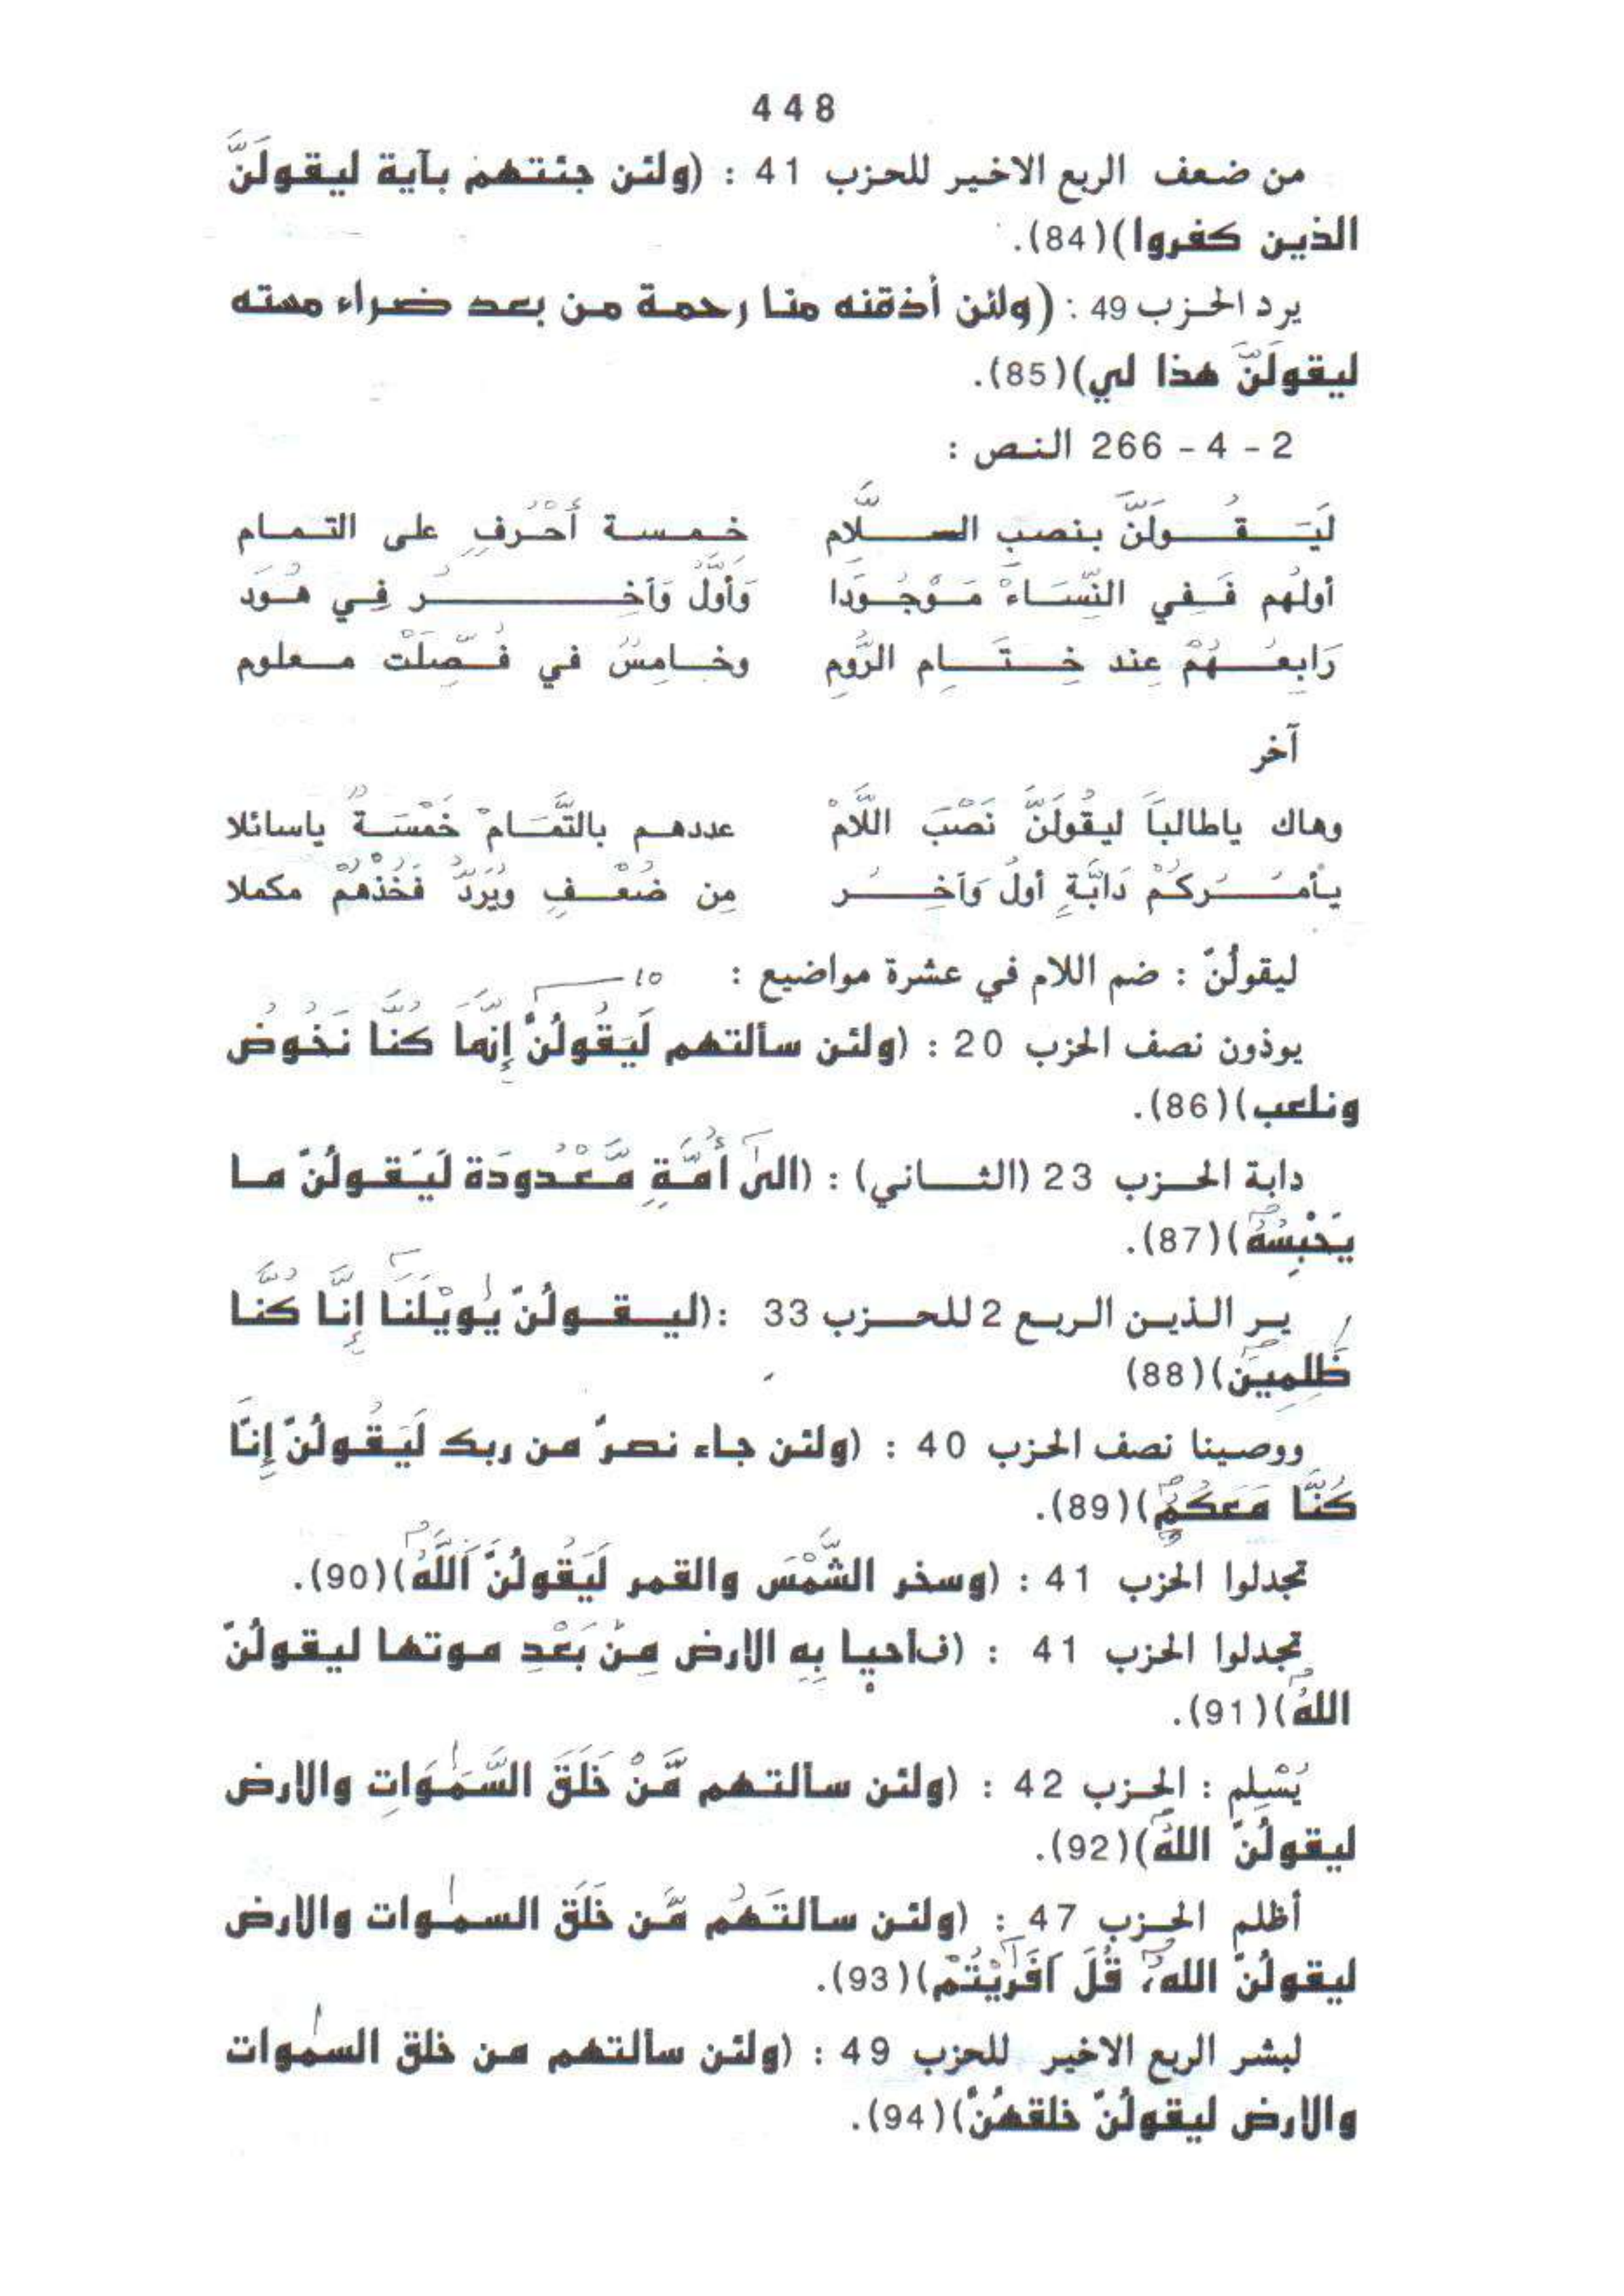 448
من ضعف الربع الاخير للحزب 41 : (ولئن جئتهم بآية ليقولَنَّ
الذين كفروا)(84).
يرد الحزب 49 : (ولئن أذقنه منا رحمة من بعد ضراء مسته
ليقولَنَّ هذا لي)(85).
2 - 4 - 266 النص :
لَيَقُولَنَّ بنصبِ السلَّام خمسة أَحْرُفٍ على التمام
أولُهم فَفِي النِّسَاءْ مَوْجُودَا وَأَوَّلُ وَآخِرُ فِي هُودَ
رَابِعُهُمْ عِند خِتَامِ الرُّومِ وخامِسٌ في فُصِّلَتْ معلوم
آخر
وهاك ياطالباَ ليقُولَنَّ نَصْبَ اللَّامْ عددهم بالتَّمَامْ خَمْسَةٌ ياسائلا
يأمُرُكُمْ دَابَّةٍ أولُ وَآخِرُ مِن ضُعْفٍ وَيُرَدُّ فَخُذْهُمْ مكملا
ليقولُنّ : ضم اللام في عشرة مواضيع : 10
يوذون نصف الحزب 20 : (ولئن سألتهم لَيَقُولُنَّ إِنَّمَا كُنَّا نَخُوضُ
ونلعب)(86).
دابة الحزب 23 (الثاني) : (الىٰ أُمَّةٍ مَّعْدُودَة لَيَقولُنّ ما
يَحْبِسُهُ)(87).
ير الذين الربع 2 للحزب 33 :(ليقولُنّ يٰويْلَنَا إِنَّا كُنَّا
ظَٰلِمِينَ)(88)
ووصينا نصف الحزب 40 : (ولئن جاء نصرٌ من ربك لَيَقُولُنّ إِنَّا
كُنَّا مَعَكُمْ)(89).
تجدلوا الحزب 41 : (وسخر الشَّمْسَ والقمر لَيَقُولُنَّ اَللَّهُ)(90).
تجدلوا الحزب 41 : (فأحيا بِهِ الارض مِنْ بَعْدِ موتها ليقولُنّ
اللهُ)(91).
يُسْلِم : الحزب 42 : (ولئن سألتهم مَّنْ خَلَقَ السَّمَٰوَاتِ والارض
ليقولُنّ اللهُ)(92).
أظلم الحزب 47 : (ولئن سألتَهُم مَّن خَلَقَ السمٰوات والارض
ليقولُنّ الله، قُلَ اَفَرَٰيْتُمْ)(93).
لبشر الربع الاخير للحزب 49 : (ولئن سألتهم من خلق السمٰوات
والارض ليقولُنّ خلقهُنّ)(94).